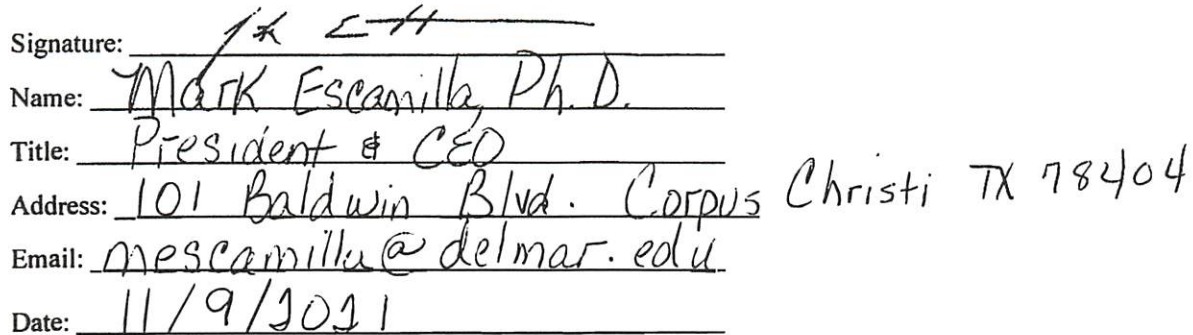 Signature:
Name: Mark Escamilla, Ph.D.
Title: President & CEO
Address: 101 Baldwin Blvd. Corpus Christi TX 78404
Email: mescamilla@delmar.edu
Date: 11/9/2021